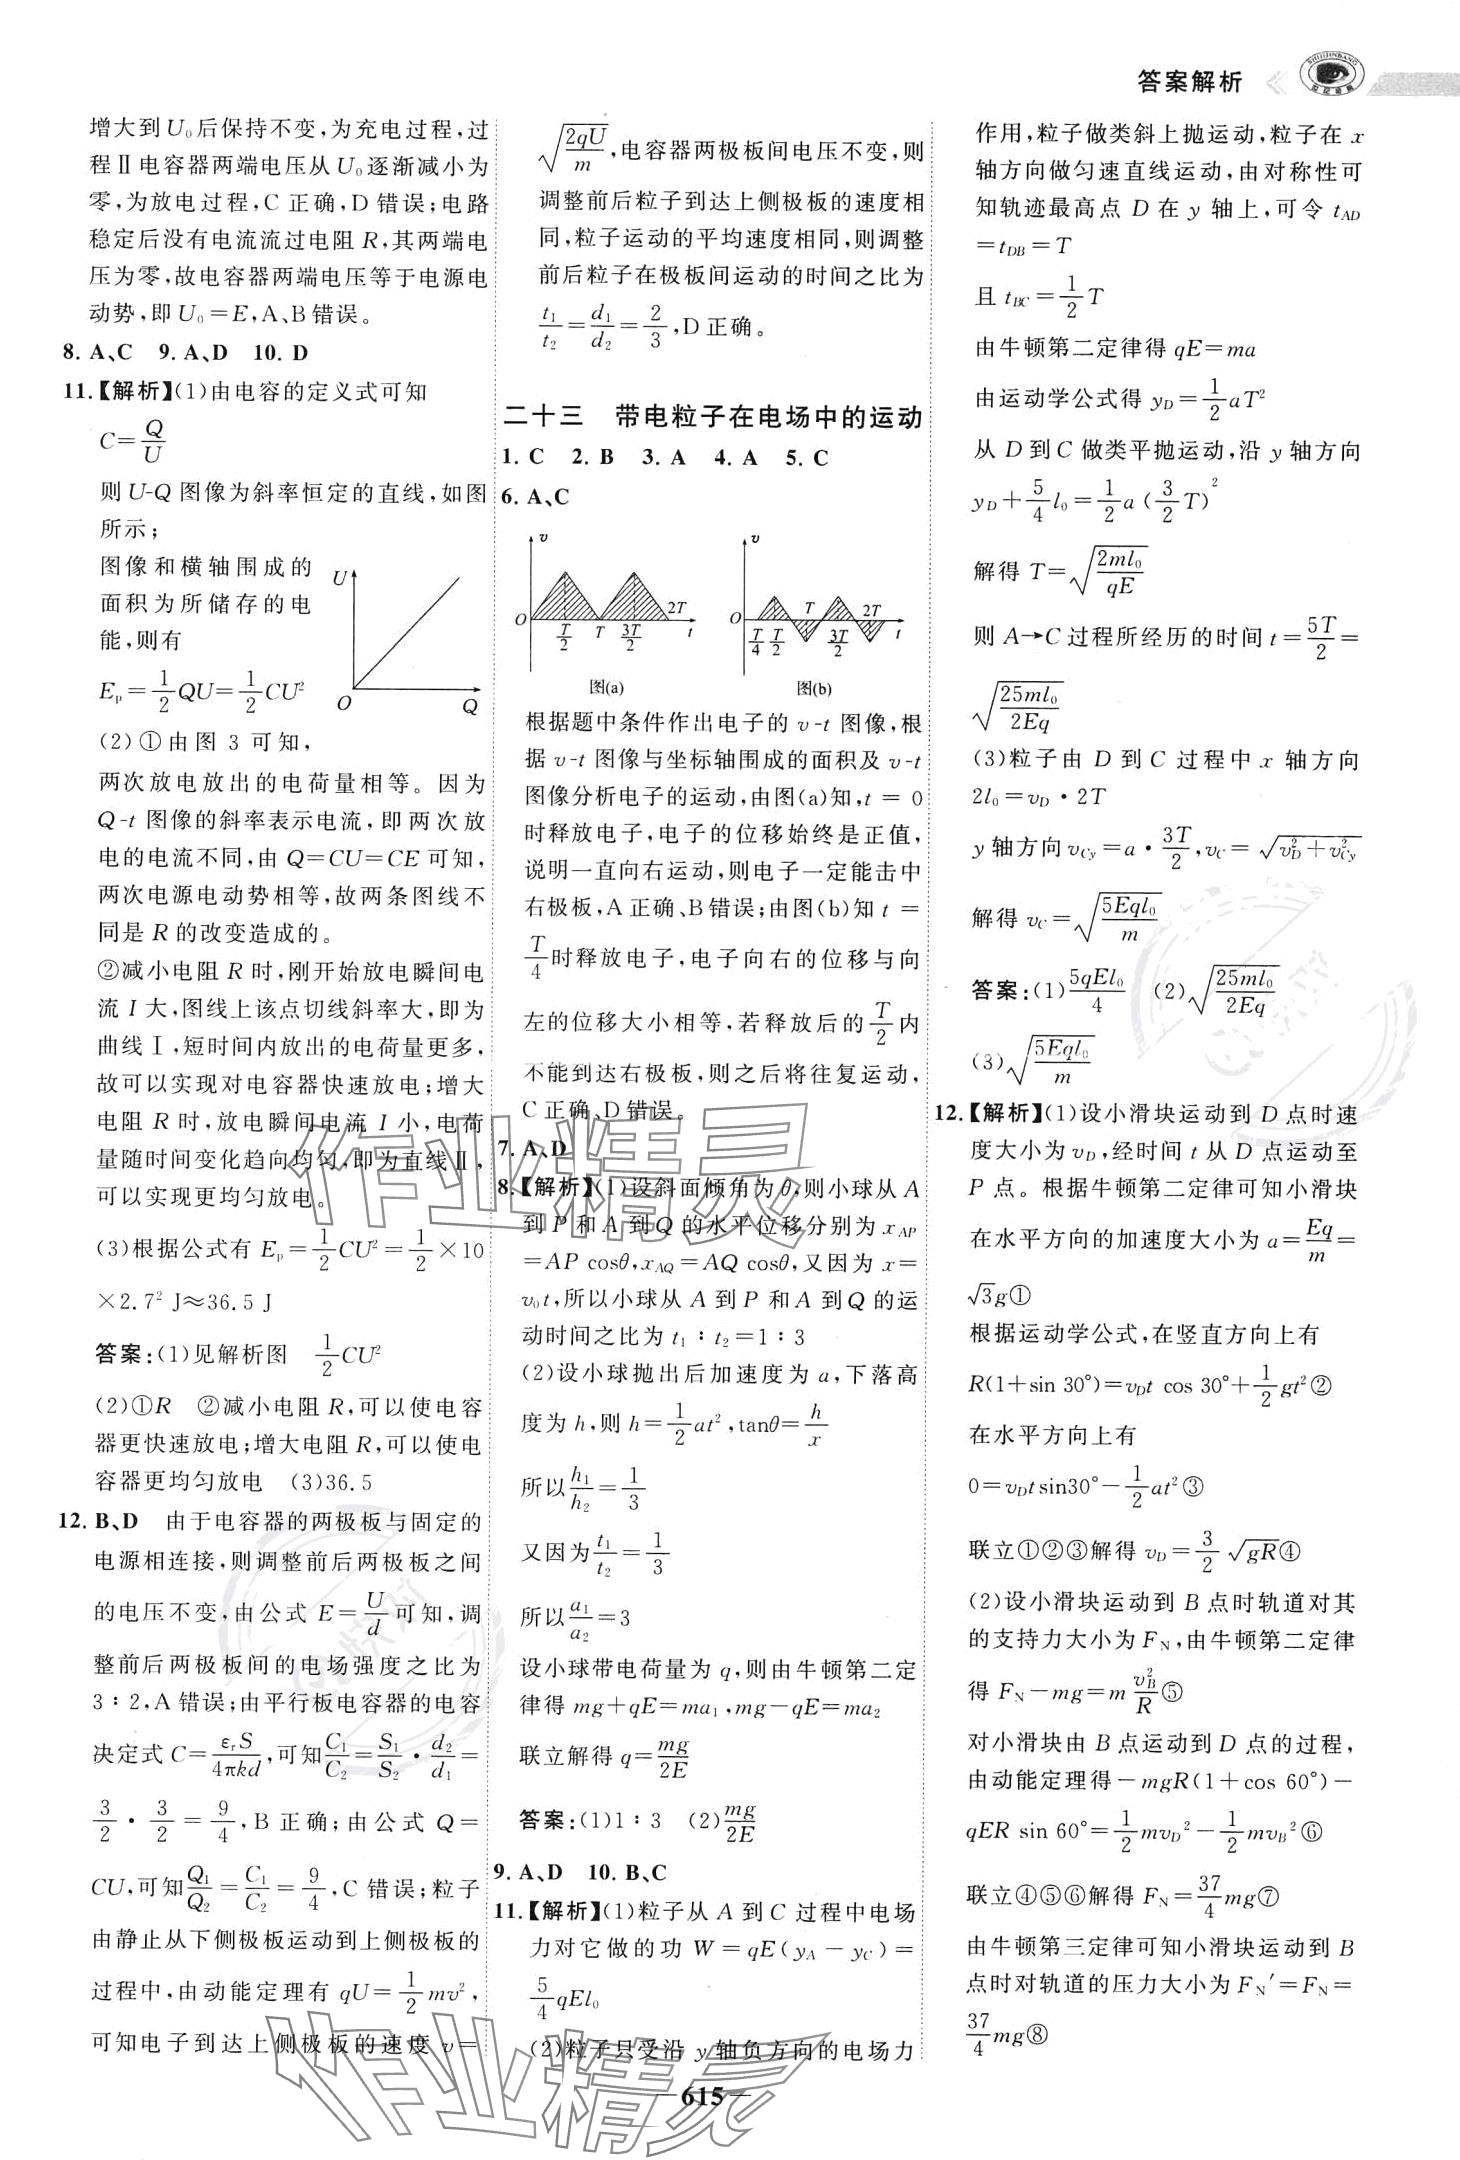 答案解析
增大到U₀后保持不变,为充电过程,过
程Ⅱ电容器两端电压从U₀逐渐减小为
零,为放电过程,C正确,D错误;电路
稳定后没有电流流过电阻R,其两端电
压为零,故电容器两端电压等于电源电
动势,即U₀=E,A、B错误。
8. A、C 9. A、D 10. D
11.【解析】(1)由电容的定义式可知
C=Q/U
则U-Q图像为斜率恒定的直线,如图
所示;
图像和横轴围成的
面积为所储存的电
能,则有
Eₚ=1/2QU=1/2CU²
U
O
Q
(2)①由图3可知,
两次放电放出的电荷量相等。因为
Q-t图像的斜率表示电流,即两次放
电的电流不同,由Q=CU=CE可知,
两次电源电动势相等,故两条图线不
同是R的改变造成的。
②减小电阻R时,刚开始放电瞬间电
流I大,图线上该点切线斜率大,即为
曲线Ⅰ,短时间内放出的电荷量更多,
故可以实现对电容器快速放电;增大
电阻R时,放电瞬间电流I小,电荷
量随时间变化趋向均匀,即为直线Ⅱ,
可以实现更均匀放电。
(3)根据公式有Eₚ=1/2CU²=1/2×10
×2.7² J≈36.5 J
答案:(1)见解析图 1/2CU²
(2)①R ②减小电阻R,可以使电容
器更快速放电;增大电阻R,可以使电
容器更均匀放电 (3)36.5
12. B、D 由于电容器的两极板与固定的
电源相连接,则调整前后两极板之间
的电压不变,由公式E=U/d可知,调
整前后两极板间的电场强度之比为
3∶2,A错误;由平行板电容器的电容
决定式C=εᵣS/4πkd,可知C₁/C₂=S₁/S₂·d₂/d₁=
3/2·3/2=9/4,B正确;由公式Q=
CU,可知Q₁/Q₂=C₁/C₂=9/4,C错误;粒子
由静止从下侧极板运动到上侧极板的
过程中,由动能定理有qU=1/2mv²,
可知电子到达上侧极板的速度v=
√(2qU/m),电容器两极板间电压不变,则
调整前后粒子到达上侧极板的速度相
同,粒子运动的平均速度相同,则调整
前后粒子在极板间运动的时间之比为
t₁/t₂=d₁/d₂=2/3,D正确。
二十三 带电粒子在电场中的运动
1. C 2. B 3. A 4. A 5. C
6. A、C
v O T/2 T 3T/2 2T t
图(a)
v O T/4 T/2 T 3T/2 2T t
图(b)
根据题中条件作出电子的v-t图像,根
据v-t图像与坐标轴围成的面积及v-t
图像分析电子的运动,由图(a)知,t=0
时释放电子,电子的位移始终是正值,
说明一直向右运动,则电子一定能击中
右极板,A正确、B错误;由图(b)知t=
T/4时释放电子,电子向右的位移与向
左的位移大小相等,若释放后的T/2内
不能到达右极板,则之后将往复运动,
C正确、D错误。
7. A、D
8.【解析】(1)设斜面倾角为θ,则小球从A
到P和A到Q的水平位移分别为x_AP
=AP cosθ,x_AQ=AQ cosθ,又因为x=
v₀t,所以小球从A到P和A到Q的运
动时间之比为t₁∶t₂=1∶3
(2)设小球抛出后加速度为a,下落高
度为h,则h=1/2at²,tanθ=h/x
所以h₁/h₂=1/3
又因为t₁/t₂=1/3
所以a₁/a₂=3
设小球带电荷量为q,则由牛顿第二定
律得mg+qE=ma₁,mg-qE=ma₂
联立解得q=mg/2E
答案:(1)1∶3 (2)mg/2E
9. A、D 10. B、C
11.【解析】(1)粒子从A到C过程中电场
力对它做的功W=qE(y_A-y_C)=
5/4qEl₀
(2)粒子只受沿y轴负方向的电场力
作用,粒子做类斜上抛运动,粒子在x
轴方向做匀速直线运动,由对称性可
知轨迹最高点D在y轴上,可令t_AD
=t_DB=T
且t_BC=1/2T
由牛顿第二定律得qE=ma
由运动学公式得y_D=1/2aT²
从D到C做类平抛运动,沿y轴方向
y_D+5/4l₀=1/2a(3/2T)²
解得T=√(2ml₀/qE)
则A→C过程所经历的时间t=5T/2=
√(25ml₀/2Eq)
(3)粒子由D到C过程中x轴方向
2l₀=v_D·2T
y轴方向v_Cy=a·3T/2,v_C=√(v_D²+v_Cy²)
解得v_C=√(5Eql₀/m)
答案:(1)5qEl₀/4 (2)√(25ml₀/2Eq)
(3)√(5Eql₀/m)
12.【解析】(1)设小滑块运动到D点时速
度大小为v_D,经时间t从D点运动至
P点。根据牛顿第二定律可知小滑块
在水平方向的加速度大小为a=Eq/m=
√3g①
根据运动学公式,在竖直方向上有
R(1+sin 30°)=v_Dt cos 30°+1/2gt²②
在水平方向上有
0=v_Dtsin30°-1/2at²③
联立①②③解得v_D=3/2√gR④
(2)设小滑块运动到B点时轨道对其
的支持力大小为F_N,由牛顿第二定律
得F_N-mg=m v_B²/R⑤
对小滑块由B点运动到D点的过程,
由动能定理得-mgR(1+cos 60°)-
qER sin 60°=1/2mv_D²-1/2mv_B²⑥
联立④⑤⑥解得F_N=37/4mg⑦
由牛顿第三定律可知小滑块运动到B
点时对轨道的压力大小为F_N′=F_N=
37/4mg⑧
作业精灵
作业精灵
615